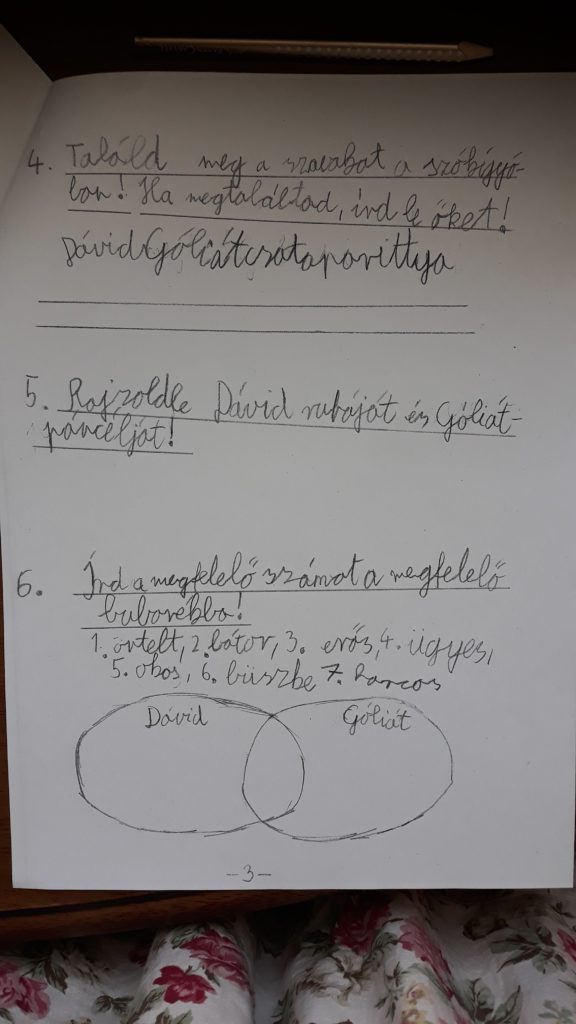 4. Találd meg a szavakat a szóbígyó-
ban! Ha megtaláltad, írd le őket!
DávidGóliátcsataparittya
5. Rajzold le Dávid ruháját és Góliát
páncélját!
6. Írd a megfelelő számot a megfelelő
buborékba!
1. örtelt, 2. bátor, 3. erős, 4. ügyes,
5. okos, 6. büszke 7. harcos
Dávid Góliát
-3-